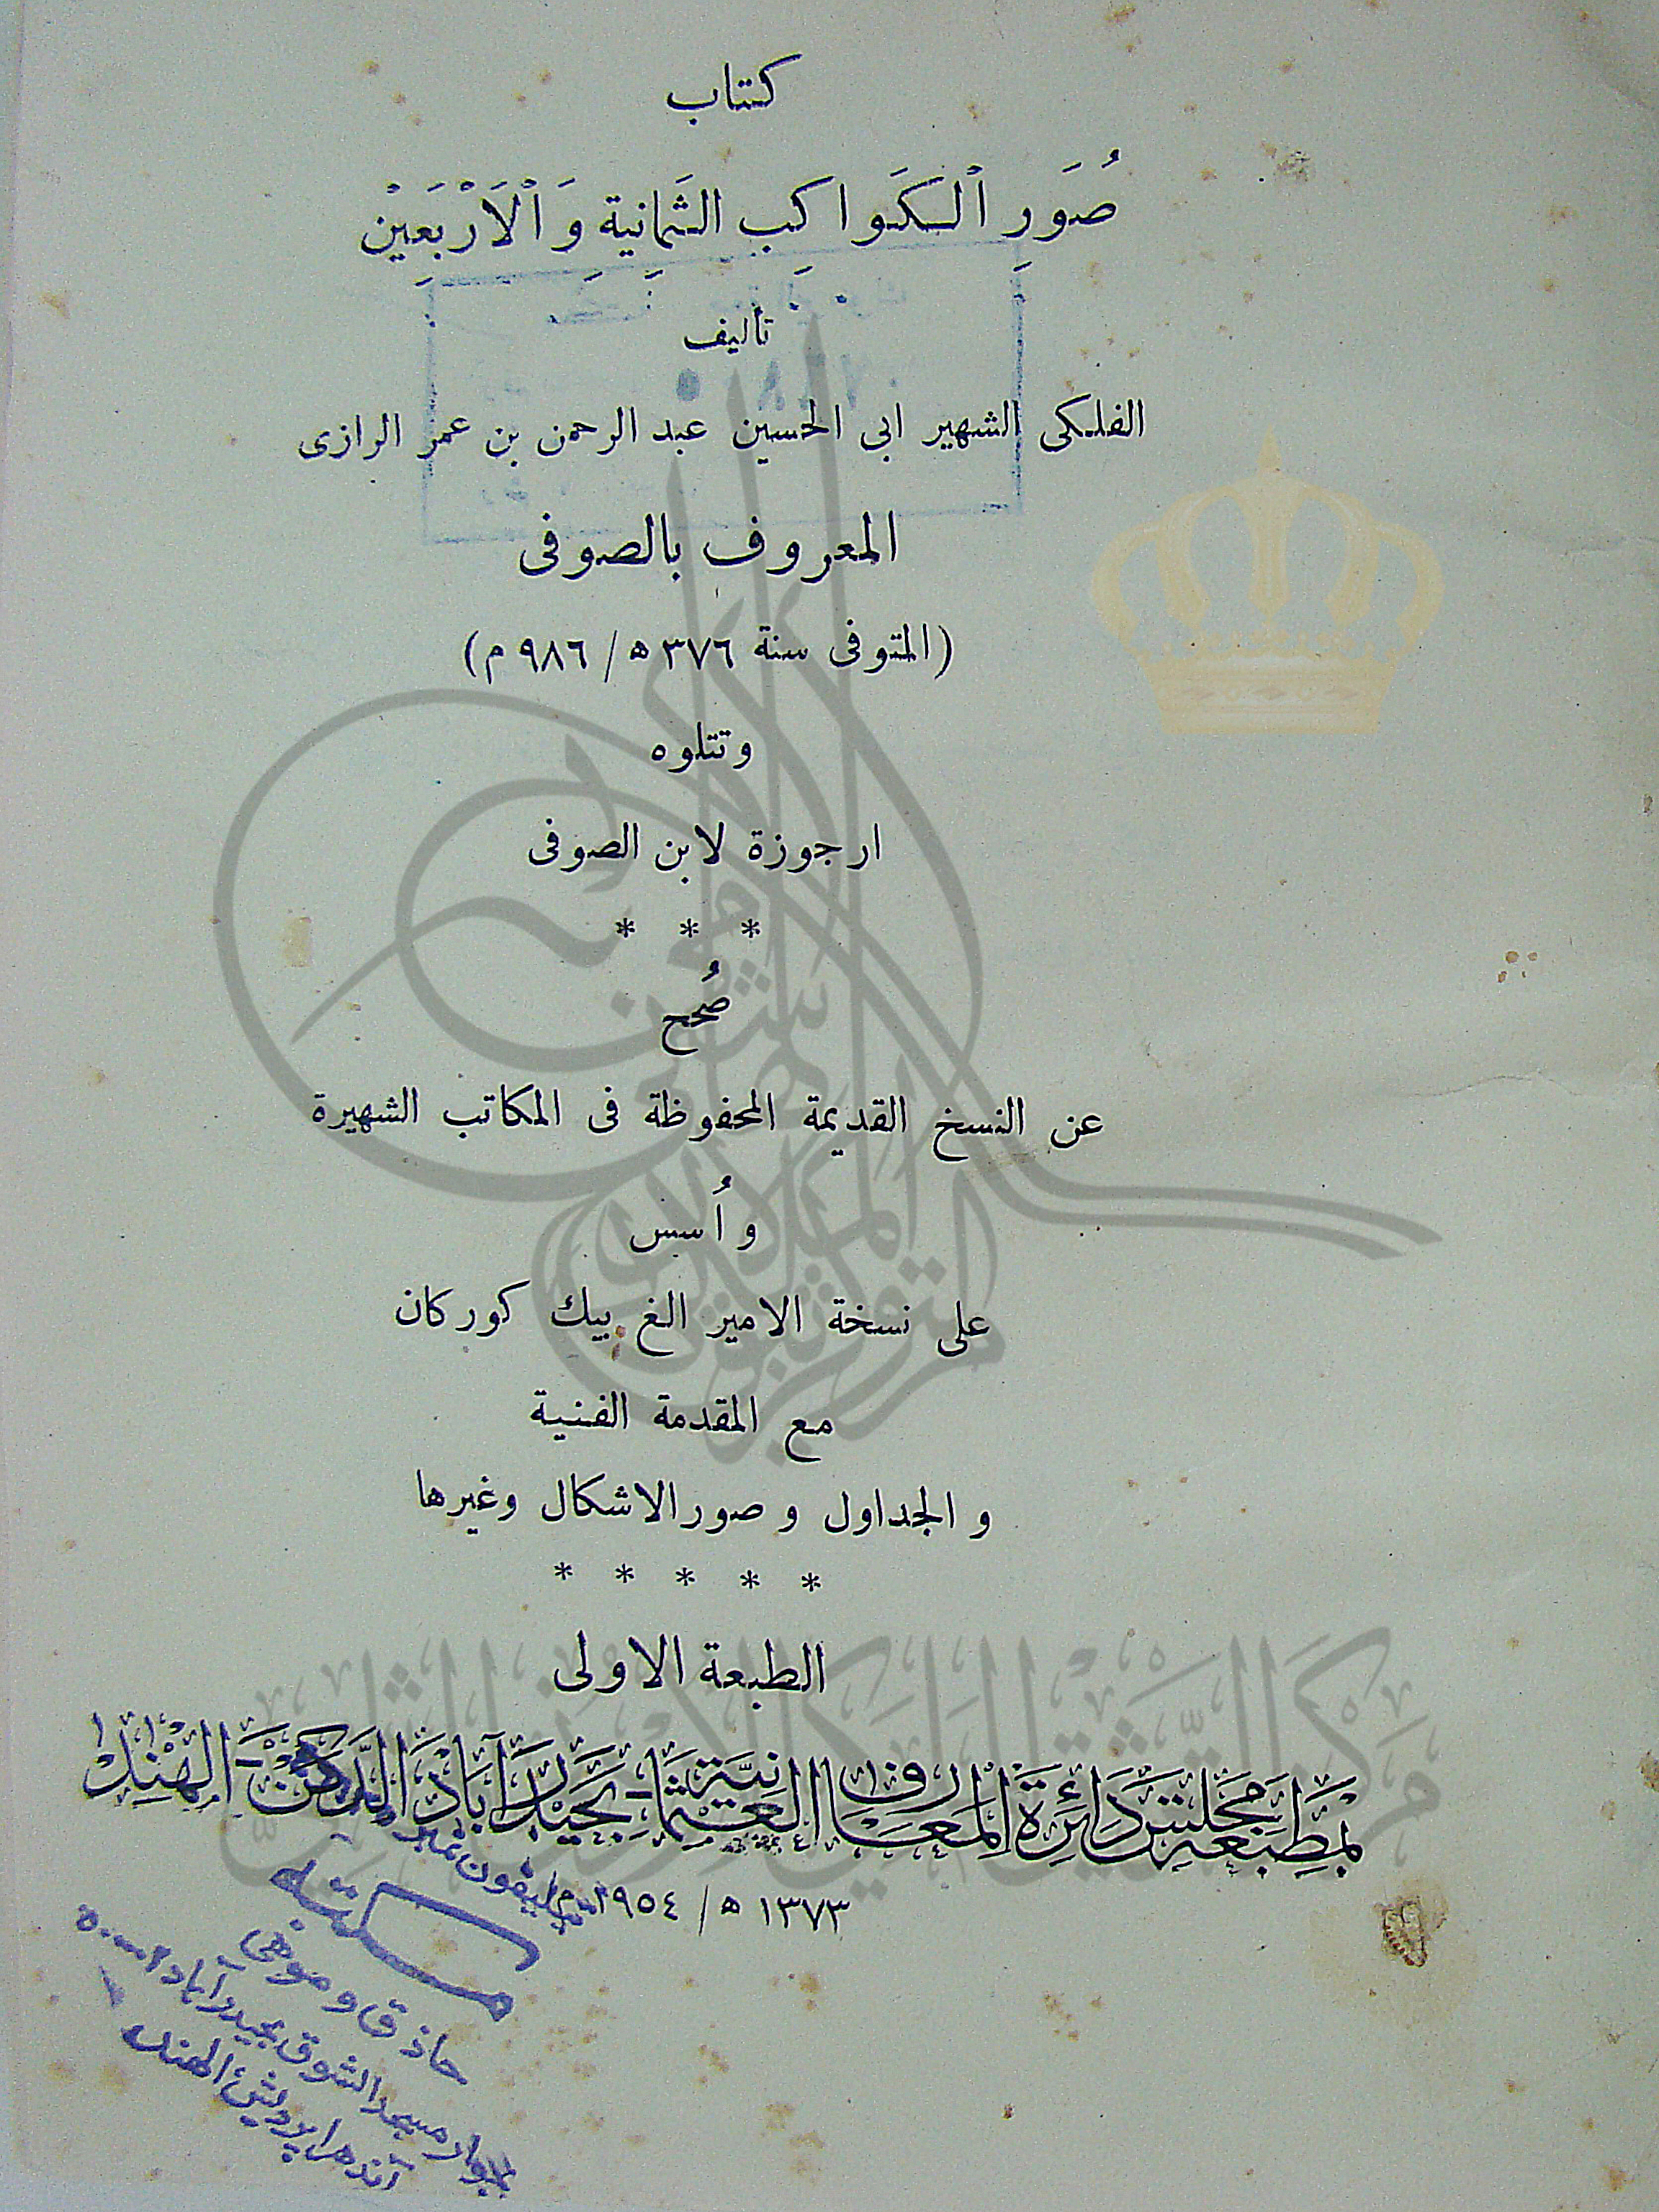 كتاب
صُوَرِ ٱلْكَوَاكب الثَمانية وَٱلْاَرْبَعَيْن
تأليف
الفلكى الشهير ابى الحسين عبد الرحمن بن عمر الرازى
المعروف بالصوفى
(المتوفى سنة ٣٧٦ ه / ٩٨٦ م)
وتتلوه
ارجوزة لابن الصوفى
* * *
صُحح
عن النسخ القديمة المحفوظة فى المكاتب الشهيرة
و اُسس
على نسخة الامير الغ بيك كوركان
مع المقدمة الفنية
و الجداول و صور الاشكال وغيرها
* * * * *
الطبعة الاولى
بمطبعة مجلس دائرة المعارف العثمانية بحيدرآباد الدكن الهند
١٣٧٣ ه / ١٩٥٤ م
مكتبه
حاذق و موفى
بجوار مسجد الشوق بحيدرآباد
آندهرا پردیش الهند